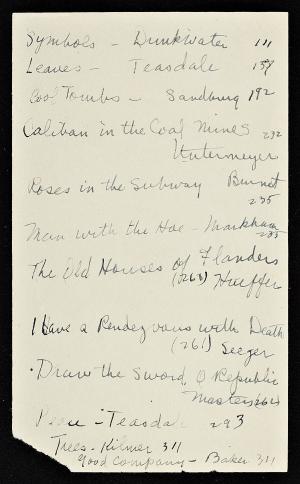 Symbols - Drinkwater 111
Leaves - Teasdale 137
Cool Tombs - Sandburg 192
Caliban in the Coal Mines 232
Untermeyer
Roses in the Subway Burnet
235
Man with the Hoe - Markham
235
The Old Houses of Flanders
(263) Hueffer
I Have a Rendezvous with Death
(261) Seeger
Draw the Sword, O Republic
Masters
Peace - Teasdale 293
Trees - Kilmer 311
Good Company - Baker 311